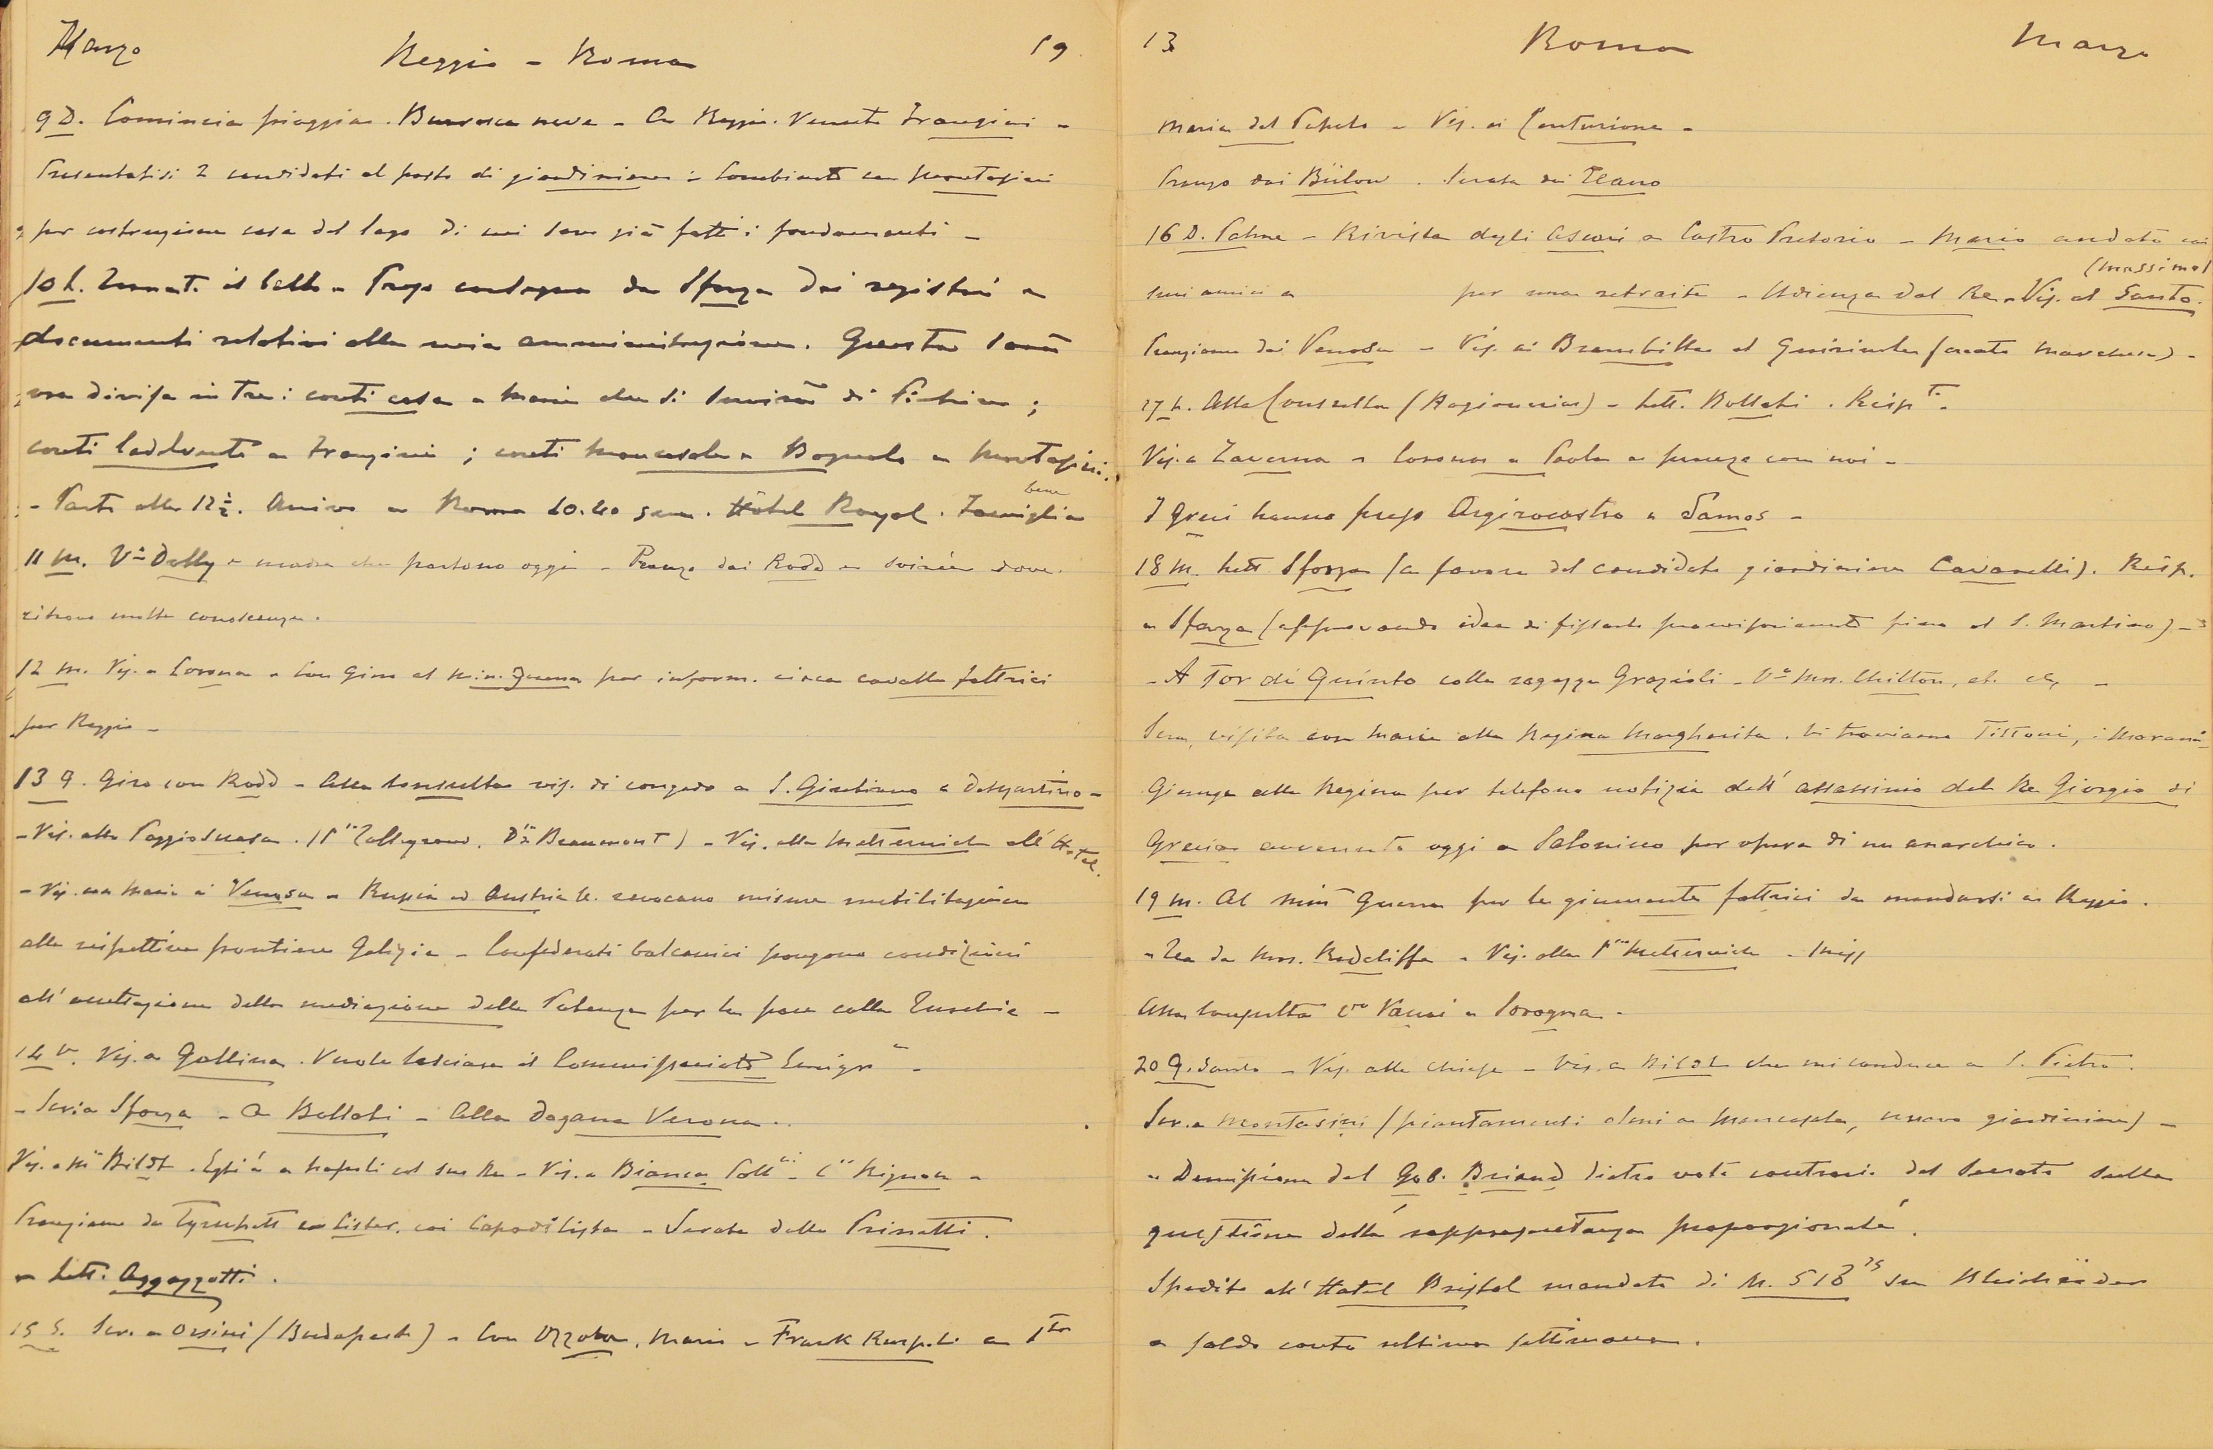 Marzo Reggio - Roma 19
9 D. Comincia pioggia. Burrasca neve - A Reggio. Venuto Frangini -
Presentatisi 2 candidati al posto di giardiniere : Combinato con Montasini
per costruzione casa del lago di cui sono già fatti i fondamenti -
10 L. Tornato il bello - Prego consegna da Sforza dei registri e
documenti relativi alla mia amministrazione. Questa sarà
ora divisa in tre : conti casa a Maria che si servirà di ;
conti a Frangini ; conti Mancasale e Bagnolo a Montasini.
- Parto alle 12½. Arrivo a Roma 10.40 sera. Hôtel Royal. Famiglia bene
11 M. Vª Dolly e madre che partono oggi - Pranzo dai Rodd e soirée dove
ritrovo molte conoscenze.
12 M. Vis. a Corsna - Con Gino al Min. Guerra per inform. circa cavalle fattrici
per Reggio -
13 G. Giro con Rodd - Alla Consulta vis. di congedo a S. Giuliano e Demartino -
- Vis. alla Poggiosuasa. (Pssa Talleyrand, Dssa Beaumont) - Vis. alla Metternich all'Hotel.
- Vis. con Maria ai Venosa - Russia ed Austria U. revocano misure mobilitazione
alla rispettiva frontiera Galizia - Confederati balcanici pongono condizioni
all'accettazione della mediazione delle Potenze per la pace colla Turchia -
14 V. Vis. a Gallina. Vuole lasciare il Commissariato Emigrne -
- Scrivo Sforza - A Bollati - Alla Dogana Verona.
Vis. a Mr Bildt. Egli è a Napoli col suo Re - Vis. a Bianca - Css Mignon -
Pranziamo da Tyrwhitt e Lister, coi Capodilista - Serata dalla Prinetti.
- Lett. Aggazzotti.
15 S. Scr. a Orsini (Budapest) - Con, Maria e Frank Ruspoli a Sta
13 Roma Marzo
Maria del Popolo - Vis. ai Centurione -
Pranzo dai Bülow. Serata dai Teano
16 D. Palme - Rivista degli Ascari a Castro Pretorio - Mario andato coi
suoi amici a per una retraite - Udienza dal Re - Vis. al Santo. (Massimo)
Pranziamo dai Venosa - Vis. ai Brambilla al Quirinale (creato marchese) -
17 L. Alla Consulta (Ragioneria) - Lett. Bollati. Rispto.
Vis. a Taverna - Corsna e Paola a pranzo con noi -
I Greci hanno preso Argirocastro e Samos -
18 M. Lett Sforza (a favore del candidato giardiniere Cavanelli). Risp.
a Sforza (approvando idea di fissarlo provvisoriamente fino al S. Martino) -
- A Tor di Quinto colle ragazze Grazioli - Vª Mrs. Chilton, et. etc. -
Sera, visita con Maria alla Regina Margherita. Vi troviamo Tittoni, i
Giunge alla Regina per telefono notizia dell'assassinio del Re Giorgio di
Grecia avvenuto oggi a Salonicco per opera di un anarchico.
19 M. Al Min. Guerra per le giumente fattrici da mandarsi a Reggio.
- Tea da Mrs. Radcliffe - Vis. alla Pssa Metternich -
Alla Consulta Cte Vanni e Soragna -
20 G. Santo - Vis. alle chiese - Vis. a Bildt che mi conduce a S. Pietro.
Scr. a Montasini (piantamenti olmi a Mancasale, nuovo giardiniere) -
- Demissione del Gab. Briand dietro voto contrario del Senato sulla
questione della rappresentanza proporzionale.
Spedito all'Hotel Bristol mandato di M. 518.75 su Bleichröder
a saldo conto ultima settimana.